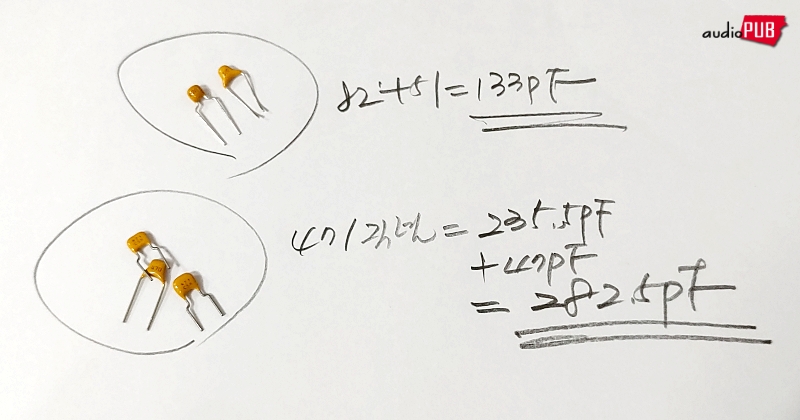 audioPUB
82+51=133pF
471직렬=235.5pF
+47pF
=282.5pF